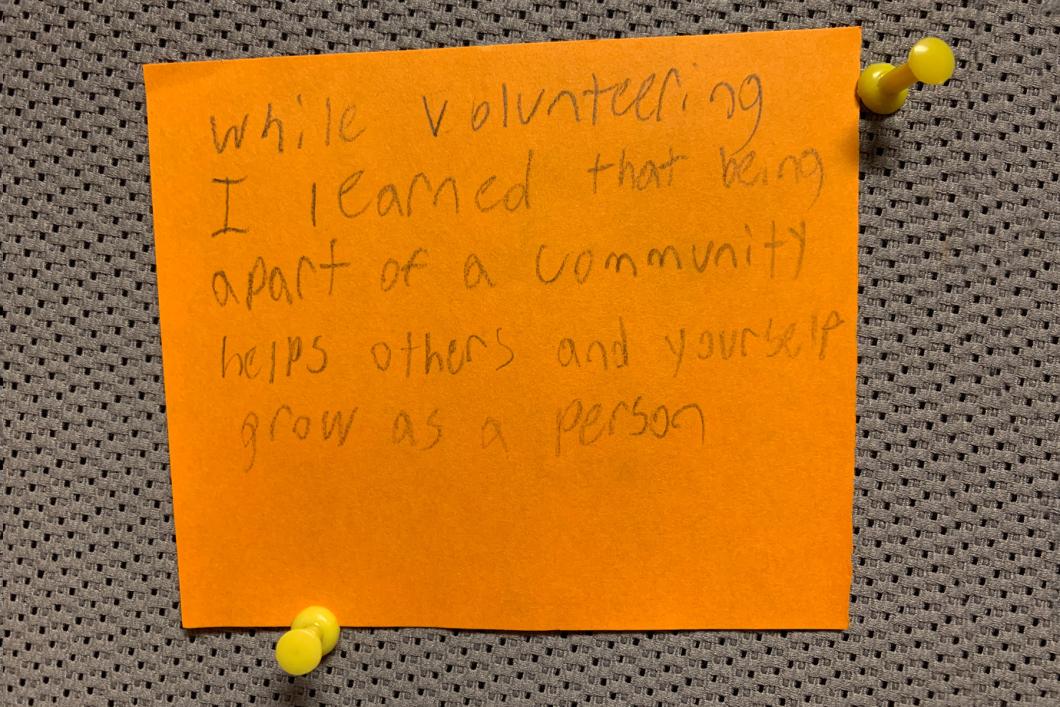 while volunteering
I learned that being
apart of a community
helps others and yourself
grow as a person